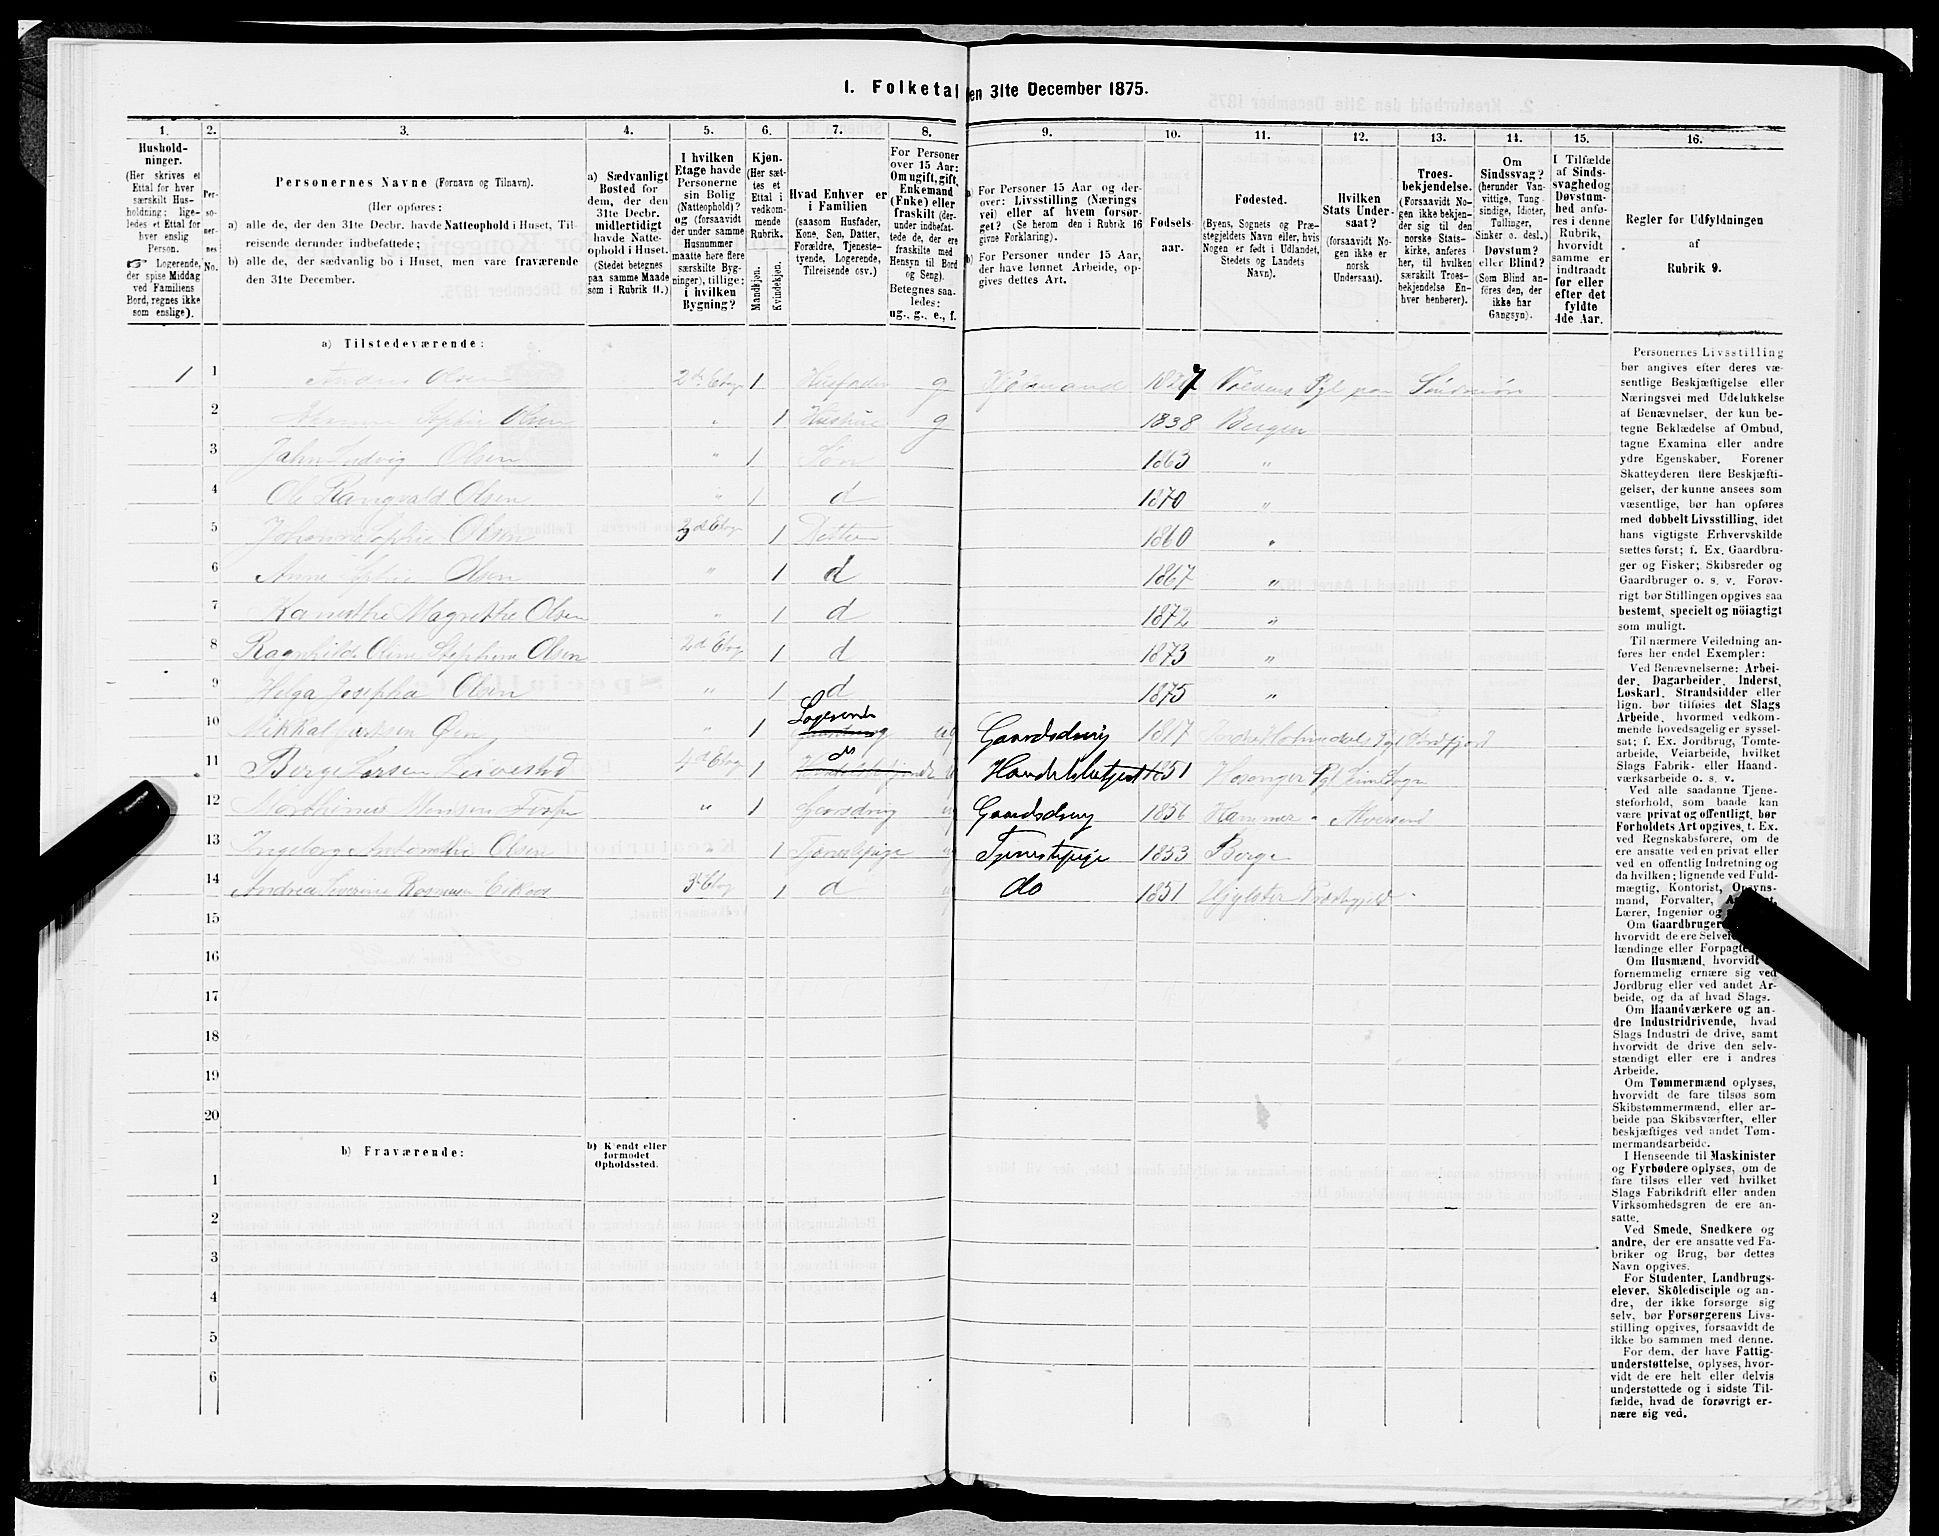 I. Folketal den 31te December 1875.
1.
Hushold-
ninger.
(Her skrives et
Ettal for hver
særskilt Hus-
holdning; lige-
ledes et Ettal for
hver enslig
Person.
☞ Logerende,
der spise Middag
ved Familiens
Bord, regnes ikke
som enslige).
2.
Per-
so-
ner-
nes
No.
3.
Personernes Navne (Fornavn og Tilnavn).
(Her opføres:
a) alle de, der den 31te Decbr. havde Natteophold i Huset, Til-
reisende derunder indbefattede;
b) alle de, der sædvanlig bo i Huset, men vare fraværende
den 31te December.
4.
a) Sædvanligt
Bosted for
dem, der den
31te Decbr.
midlertidigt
havde Natte-
ophold i Huset.
(Stedet betegnes
paa samme Maade
som i Rubrik 11.)
5.
I hvilken
Etage havde
Personerne
sin Bolig
(Natteophold)?
og (forsaavidt
der under samme
Husnummer
maatte høre flere
særskilte Byg-
ninger), tillige:
i hvilken
Bygning?
6.
Kjøn.
(Her sæt-
tes et
Ettal i
vedkom-
mende
Rubrik.
Mandkjøn.
Kvindekjøn.
7.
Hvad Enhver er
i Familien
(saasom Husfader,
Kone, Søn, Datter,
Forældre, Tjeneste-
tyende, Logerende,
Tilreisende osv.)
8.
For Personer
over 15 Aar:
Om ugift, gift,
Enkemand
(Enke) eller
fraskilt (der-
under indbefat-
tede de, der ere
fraskilte med
Hensyn til Bord
og Seng).
Betegnes saa-
ledes:
ug., g., e., f.
9.
a) For Personer 15 Aar og der-
over: Livsstilling (Nærings
vei) eller af hvem forsør-
get? (Se herom den i Rubrik 16
givne Forklaring).
b) For Personer under 15 Aar,
der have lønnet Arbeide, op-
gives dettes Art.
10.
Fødsels-
aar.
11.
Fødested.
(Byens, Sognets og Præ-
stegjeldets Navn eller, hvis
Nogen er født i Udlandet,
Stedets og Landets
Navn).
12.
Hvilken
Stats Under-
saat?
(forsaavidt No-
gen ikke er
norsk
Undersaat).
13.
Troes-
bekjendelse.
(Forsaavidt No-
gen ikke bekjen-
der sig til den
norske Stats-
kirke, anføres
her, til hvilken
særskilt Troes-
bekjendelse En-
hver henhører).
14.
Om
Sindssvag?
(herunder Van-
vittige, Tung-
sindige, Idioter,
Tullinger,
Sinker o. desl.)
Døvstum?
eller Blind?
(Som Blind an-
føres den, der
ikke har
Gangsyn).
15.
I Tilfælde
af Sinds-
svaghed og
Døvstum-
hed anfø-
res i denne
Rubrik,
hvorvidt
samme er
indtraadt
før eller
efter det
fyldte
4de Aar.
16.
Regler for Udfyldningen
af
Rubrik 9.
a) Tilstedeværende:
1 1 Olsen 2d Etage 1 Husfader g 1827 Pgl paa Söndmör
2 Sophie Olsen " 1 Hustrue g 1838 Bergen
3 Jahn Ludvig Olsen " 1 Søn 1863 "
4 Ole Rangvald Olsen " 1 d 1870 "
5 Johanne Sophie Olsen 3d Etage 1 Datter 1860 "
6 Anne Sophie Olsen " 1 d 1867 "
7 Magrethe Olsen " 1 d 1872 "
8 Ragnhilde Oline Olsen 2d Etage 1 d 1873 "
9 Helga Josepha Olsen " 1 d 1875 "
10 Mikkal " 1 Logerende ug Gaardsdreng 1817
11 Berge Larsen 4d Etage 1 do Handelsbetjent 1851 Hosanger Pgl
12 " 1 Gaarsdreng ug Gaardsdreng 1856 Hammer
13 Ingeborg Olsen " 1 Tjenestepige ug Tjenestepige 1853
14 Andrea Severine 3d Etage 1 d ug do 1851 Præstegjeld
15
16
17
18
19
20
b) Fraværende:
b) Kjendt eller
formodet
Opholdssted.
1
2
3
4
5
6
Personernes Livsstilling
bør angives efter deres væ-
sentlige Beskjæftigelse eller
Næringsvei med Udelukkelse
af Benævnelser, der kun be-
tegne Beklædelse af Ombud,
tagne Examina eller andre
ydre Egenskaber. Forener
Skatteyderen flere Beskjæfti-
gelser, der kunne ansees som
væsentlige, bør han opføres
med dobbelt Livsstilling, idet
hans vigtigste Erhvervskilde
sættes først; f. Ex. Gaardbru-
ger og Fisker; Skibsreder og
Gaardbruger o. s. v. Forøv-
rigt bør Stillingen opgives saa
bestemt, specielt og nöiagtigt
som muligt.
Til nærmere Veiledning an-
føres her endel Exempler:
Ved Benævnelserne: Arbei-
der, Dagarbeider, Inderst,
Løskarl, Strandsidder eller
lign. bør tilføies det Slags
Arbeide, hvormed vedkom-
mende hovedsagelig er syssel-
sat; f. Ex. Jordbrug, Tomte-
arbeide, Veiarbeide, hvilket
Slags Fabrik- eller Haand-
værksarbeide o. s. v.
Ved alle saadanne Tjene-
steforhold, som baade kan
være privat og offentligt, bør
Forholdets Art opgives, t. Ex.
ved Regnskabsførere, om de
ere ansatte ved en privat eller
ved en offentlig Indretning og
da hvilken; lignende ved Fuld-
mægtig, Kontorist, Opsyns-
mand, Forvalter,
Lærer, Ingeniør og
Om Gaardbrugere
hvorvidt de ere Selveiere,
lændinge eller Forpagtere.
Om Husmænd, hvorvidt
fornemmelig ernære sig ved
Jordbrug eller ved andet Ar-
beide, og da af hvad Slags.
Om Haandværkere og an-
dre Industridrivende, hvad
Slags Industri de drive, samt
hvorvidt de drive den selv-
stændigt eller ere i andres
Arbeide.
Om Tømmermænd oplyses,
hvorvidt de fare tilsøs som
Skibstømmermænd, eller ar-
beide paa Skibsværfter, eller
beskjæftiges ved andet Tøm-
mermandsarbeide.
I Henseende til Maskinister
og Fyrbødere oplyses, om de
fare tilsøs eller ved hvilket
Slags Fabrikdrift eller anden
Virksomhedsgren de ere an-
satte.
Ved Smede, Snedkere og
andre, der ere ansatte ved Fa-
briker og Brug, bør dettes
Navn opgives.
For Studenter, Landbrugs-
elever, Skôledisciple og an-
dre, der ikke forsørge sig
selv, bør Forsørgerens Livs-
stilling opgives, forsaavidt de
ikke bo sammen med denne.
For dem, der have Fattig-
understøttelse, oplyses, hvor-
vidt de ere helt eller delvis
understøttede og i sidste Til-
fælde, hvad de forøvrigt er-
nære sig ved.